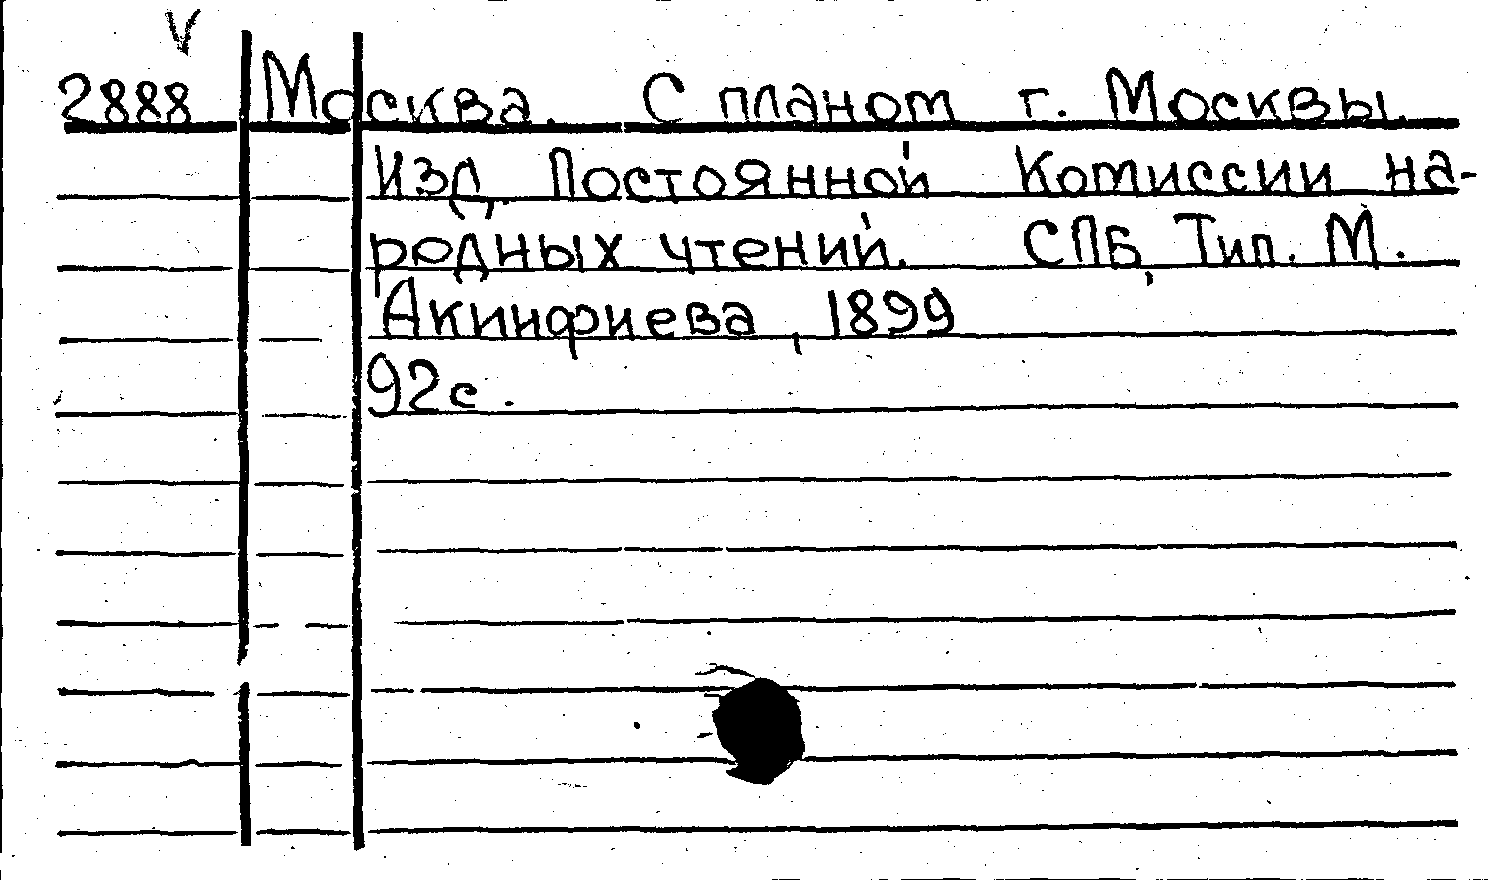 V
2888 Москва. С планом г. Москвы.
Изд. Постоянной Комиссии на-
родных чтений. СПБ, Тип. М.
Акинфиева, 1899
92с.